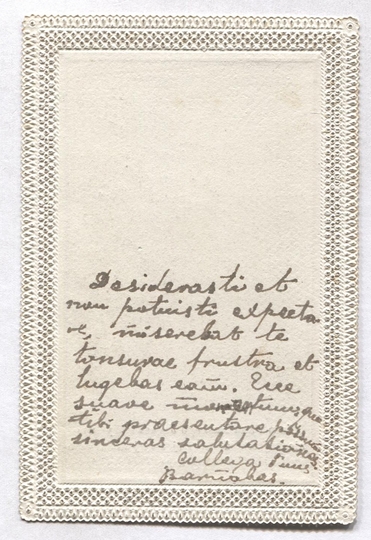 Desiderasti et
non potuisti expecta
re, miserebat te
tonsurae frustra et
lugebas eam. Ecce
suave
tibi praesentare possum
sinceras salutationes
collega tuus
Barnabas.